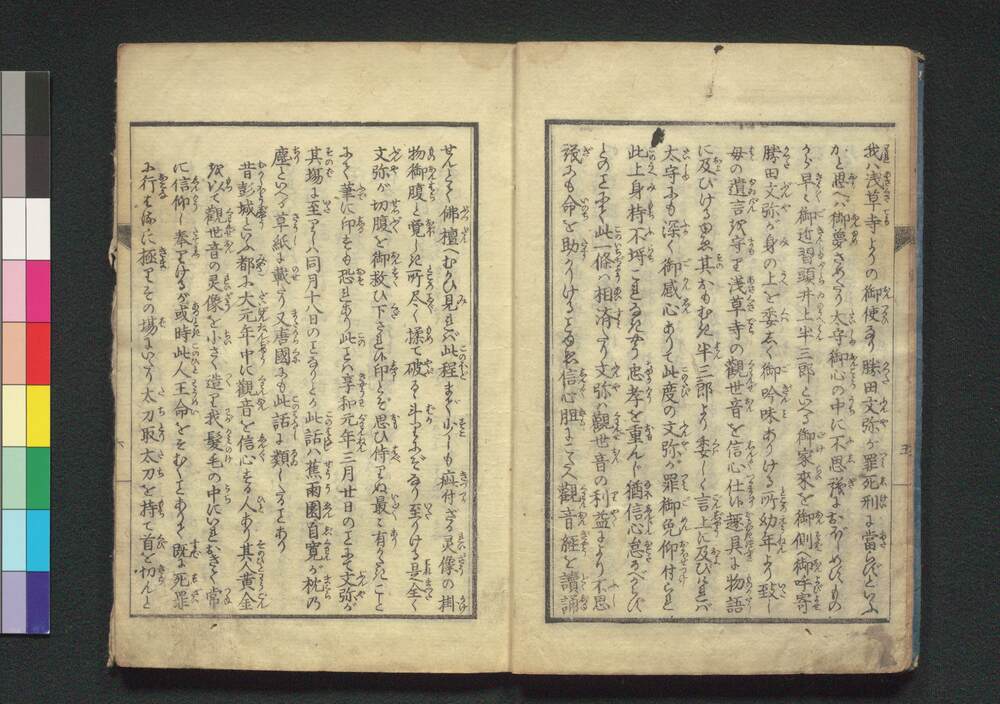 我ハ浅草寺よりの御使なり勝田文弥が罪死刑に當らずといふ
かと思へバ御夢さめたり太守御心の中に不思議におぼしめしもの
から早々御近習頭井上半三郎といへる御家來を御側へ御呼寄
勝田文弥が身の上を委しく御吟味ありける所幼年より致し
母の遺言を守り浅草寺の觀世音を信心仕る趣具に物語
に及びけるゆゑ其おもむき半三郎より委しく言上に及びけれバ
太守にも深く御感心ありて此度の文弥が罪御免仰付られ
此上身持不埒これなきやう忠孝を重んじ猶信心怠べからず
との事にて此一條ハ相済たり文弥ハ觀世音の利益により不思
議にも命を助かりけるとゆゑ信心胆にこたへ觀音経を讀誦
せんとて佛檀へむかひ見れバ此程まで少しも疵付ざる灵像の掛
物御腹と覚しき所尽く揉て破るゝ斗にぞなり至りける是全く
文弥が切腹を御救ひ下され印とぞ思ひ侍りぬ最有がたきこと
にて筆に印すも恐れあり此こと享和元年三月廿日のことにて文弥が
其場に至りしハ同月十八日のことなりとか此話ハ蕉雨園自寛が枕の
塵といへる草紙に載たり又唐國にも此話に類しることあり
昔彭城といふ都に大元年中に觀音を信心する人あり其人黄金
を以て觀世音の灵像を小さく造り我髪毛の中にいれおきて常
に信仰し奉りけるが或時此人王命をそむくことありて既に死罪
に行はるに極りその場にいたり太刀取太刀を持て首を切んと